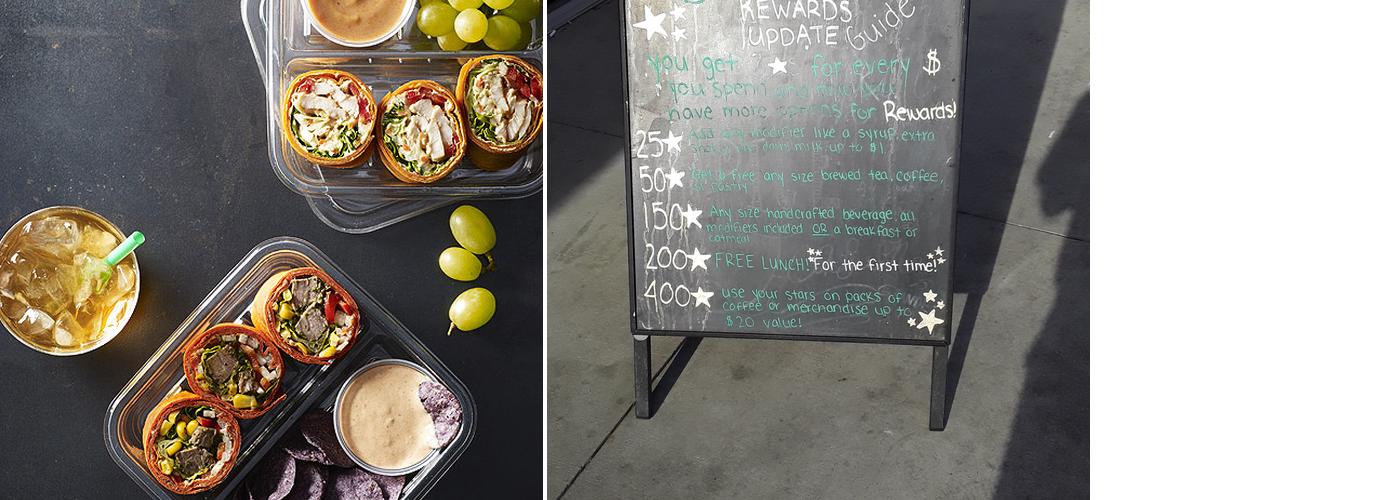 REWARDS
UPDATE Guide
you get ★ for every $
you spend and now you
have more options for Rewards!
25★ Add any modifier like a syrup, extra
shot, or dairy milk up to $1
50★ Get a free any size brewed tea, coffee,
or pastry
150★ Any size handcrafted beverage, all
modifiers included OR a breakfast or
oatmeal
200★ FREE LUNCH! For the first time!
400★ use your stars on packs of
coffee or merchandise up to
$20 value!